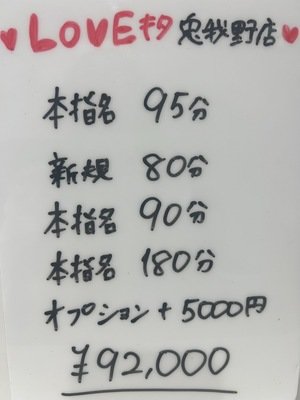 ♥LOVEキタ 兎我野店♥
本指名 95分
新規 80分
本指名 90分
本指名 180分
オプション+5000円
¥92,000